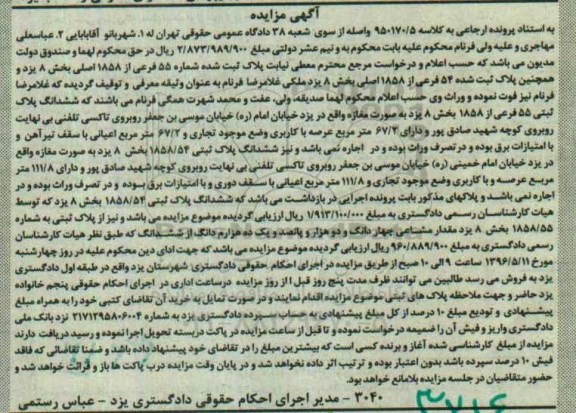 آگهی مزایده
به استناد پرونده ارجاعی به کلاسه ۹۵۰۱۷۰/۵ واصله از سوی شعبه ۳۸ دادگاه عمومی حقوقی تهران له ۱. شهربانو آقابابایی ۲. عباسعلی
مهاجری و علیه ولی فرنام محکوم علیه بابت محکوم به و نیم عشر دولتی مبلغ ۲/۸۷۳/۹۸۹/۹۰۰ ریال در حق محکوم لهما و صندوق دولت
مدیون می باشد که حسب اعلام و درخواست مرجع محترم معطی نیابت پلاک ثبت شده شماره ۵۵ فرعی از ۱۸۵۸ اصلی بخش ۸ یزد و
همچنین پلاک ثبت شده ۵۴ فرعی از ۱۸۵۸ اصلی بخش ۸ یزد ملکی غلامرضا فرنام به عنوان وثیقه معرفی و توقیف گردیده که غلامرضا
فرنام نیز فوت نموده و وراث وی حسب اعلام محکوم لهما صدیقه، ولی، عفت و محمد شهرت همگی فرنام می باشند که ششدانگ پلاک
ثبتی ۵۵ فرعی از ۱۸۵۸ بخش ۸ یزد به صورت مغازه واقع در یزد خیابان امام (ره) خیابان موسی بن جعفر روبروی تاکسی تلفنی بی نهایت
روبروی کوچه شهید صادق پور و دارای ۶۷/۲ متر مربع عرصه با کاربری وضع موجود تجاری و ۶۷/۲ متر مربع اعیانی با سقف تیرآهن و
با امتیازات برق بوده و در تصرف وراث بوده و در اجاره نمی باشد و نیز ششدانگ پلاک ثبتی ۱۸۵۸/۵۴ بخش ۸ یزد به صورت مغازه واقع
در یزد خیابان امام خمینی (ره) خیابان موسی بن جعفر روبروی تاکسی تلفنی بی نهایت روبروی کوچه شهید صادق پور و دارای ۱۱۱/۸ متر
مربع عرصه و با کاربری وضع موجود تجاری و ۱۱۱/۸ متر مربع اعیانی با سقف دوری و با امتیازات برق بوده و در تصرف وراث بوده و در
اجاره نمی باشد و پلاکهای مذکور بابت پرونده اجرایی در بازداشت می باشد که ششدانگ پلاک ثبتی ۱۸۵۸/۵۴ بخش ۸ یزد که توسط
هیات کارشناسان رسمی دادگستری به مبلغ ۷/۹۱۳/۱۰۰/۰۰۰ ریال ارزیابی گردیده موضوع مزایده می باشد و نیز از پلاک ثبتی به شماره
۱۸۵۸/۵۵ بخش ۸ یزد مقدار مشاعی چهار دانگ و دو هزار و پانصد و یک ده هزارم دانگ از ششدانگ که طبق نظر هیات کارشناسان
رسمی دادگستری به مبلغ ۹۶۰/۸۸۹/۹۰۰ ریال ارزیابی گردیده موضوع مزایده می باشد که جهت ادای دین محکوم علیه در روز چهارشنبه
مورخ ۱۳۹۶/۵/۱۱ ساعت ۹ الی ۱۰ صبح از طریق مزایده در اجرای احکام حقوقی دادگستری شهرستان یزد واقع در طبقه اول دادگستری
یزد به فروش می رسد طالبین می توانند ظرف مدت پنج روز قبل از روز مزایده درساعت اداری در اجرای احکام حقوقی پنجم خانواده
یزد حاضر و جهت ملاحظه پلاک های ثبتی موضوع مزایده اقدام نمایند و در صورت تمایل به خرید آن تقاضای کتبی خود را به همراه مبلغ
پیشنهادی و تودیع مبلغ ۱۰ درصد از کل مبلغ پیشنهادی به حساب سپرده دادگستری یزد به شماره ۲۱۷۱۲۹۵۸۰۶۰۰۴ نزد بانک ملی
دادگستری واریز و فیش آن را ضمیمه درخواست نموده و تا قبل از ساعت مزایده در پاکت دربسته تحویل اجرا نموده و رسید دریافت دارند
مزایده از مبلغ کارشناسی شده آغاز و برنده کسی است که بیشترین مبلغ را در تقاضای خود پیشنهاد داده باشد و ضمنا تقاضائی که فاقد
فیش ۱۰ درصد سپرده باشد بدون اعتبار بوده و ترتیب اثر داده نخواهد شد و در پایان وقت مزایده درب پاکت ها باز و قرائت خواهد شد و
حضور متقاضیان در جلسه مزایده بلامانع خواهد بود.
۳۰۴۰ - مدیر اجرای احکام حقوقی دادگستری یزد - عباس رستمی